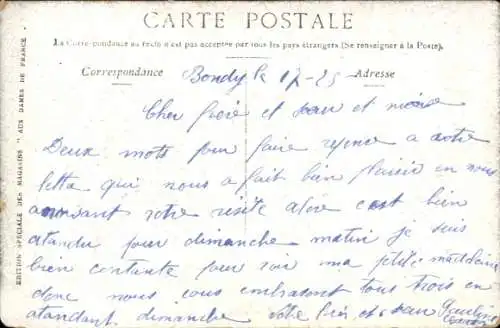 CARTE POSTALE
La Correspondance au recto n'est pas acceptée par tous les pays étrangers (Se renseigner à la Poste).
Correspondance Adresse
Bondy le 17-25
Cher frère et sœur et nièce
Deux mots pour faire reponce a votre
lettre qui nous a fait bien plaisir en nous
annonsant votre visite alors c'est bien
atandu pour dimanche matin je suis
bien contante pour voir ma petite
donc nous vous embrasont tous trois en
atandant dimanche votre frère et sœur Pauline
EDITION SPÉCIALE DES MAGASINS "AUX DAMES DE FRANCE"